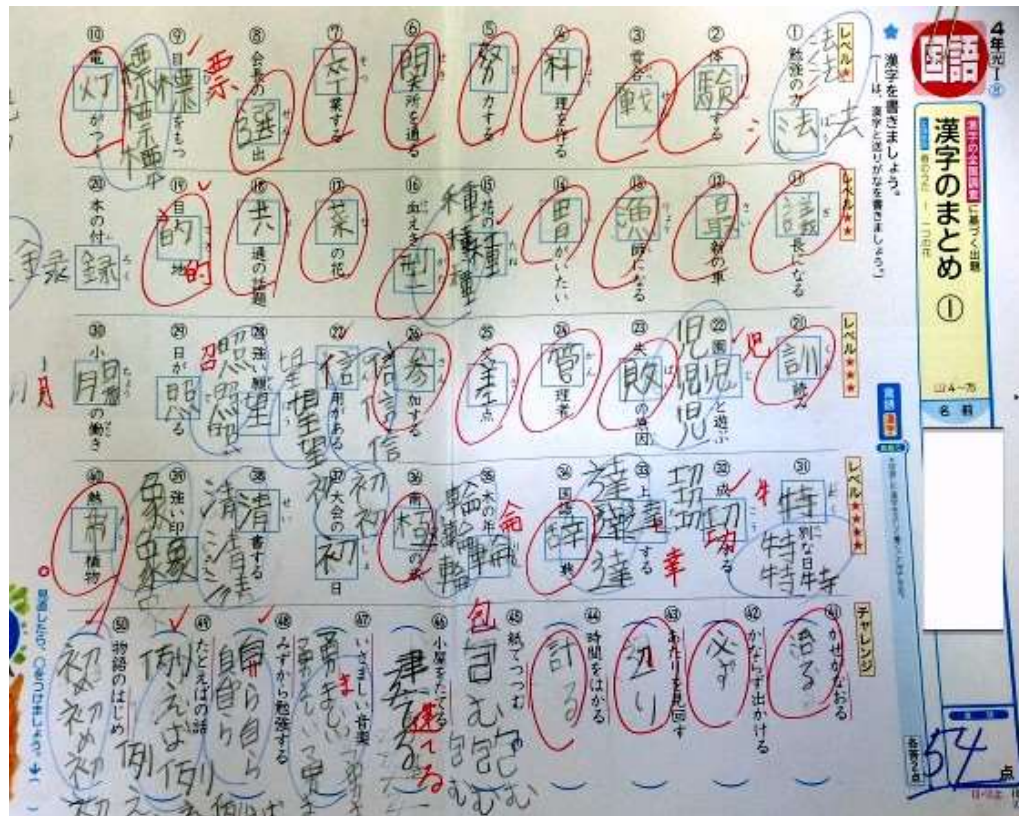 4年光一⑧
国語
漢字の全国調査に基づく出題
漢字のまとめ ①
名前
54点
各答2点
★漢字を書きましょう。
――は、漢字と送りがなを書きましょう。
レベル★
① 勉強の方法
② 体験
③ 雪合戦
④ 料理を作る
⑤ 努力する
⑥ 関所を通る
⑦ 卒業する
⑧ 会長の選出
⑨ 目標をもつ
⑩ 電灯がつく
レベル★★
⑪ 議長になる
⑫ 最新の車
⑬ 漁師になる
⑭ 胃がいたい
⑮ 花の種
⑯ 血えき型
⑰ 菜の花
⑱ 共通の話題
⑲ 目的地
⑳ 本の付録
レベル★★★
㉑ 訓読み
㉒ 園児と遊ぶ
㉓ 失敗の原因
㉔ 管理者
㉕ 交差点
㉖ 参加する
㉗ 信用がある
㉘ 強い願望
㉙ 日が照る
㉚ 小腸の働き
レベル★★★★
㉛ 特別な日
㉜ 成功する
㉝ 上達する
㉞ 国語辞典
㉟ 木の年輪
㊱ 南極の氷
㊲ 大会の初日
㊳ 清書する
㊴ 強い印象
㊵ 熱帯植物
チャレンジ
㊶ かぜがなおる 治る
㊷ かならず出かける 必ず
㊸ あたりを見回す 辺り
㊹ 時間をはかる 計る
㊺ 紙でつつむ 包む
㊻ 小屋をたてる 建てる
㊼ いさましい音楽 勇ましい
㊽ みずから勉強する 自ら
㊾ たとえばの話 例えば
㊿ 物語のはじめ 初め
見直したら、○をつけましょう。